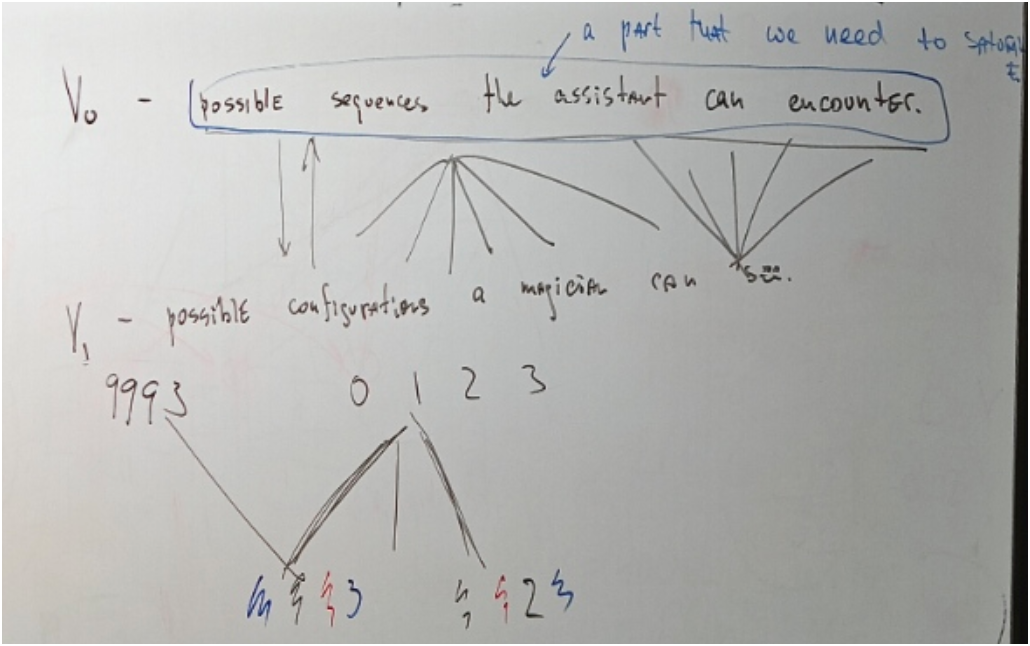 a part that we need to saturate
V₀ - possible sequences the assistant can encounter.
V₁ - possible configurations a magician can see.
9993 0 1 2 3
3 2